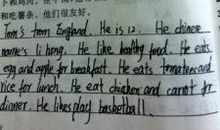 下和鸡肉，在中国，
和吃薯条。他们很好。
Tom's from England. He is 12. He chinese
name's li hong. He like healthy food. He eats
egg and apple for breakfast. He eats tomatoes and
rice for lunch. He eat chicken and carrot for
dinner. He likes play basketball.